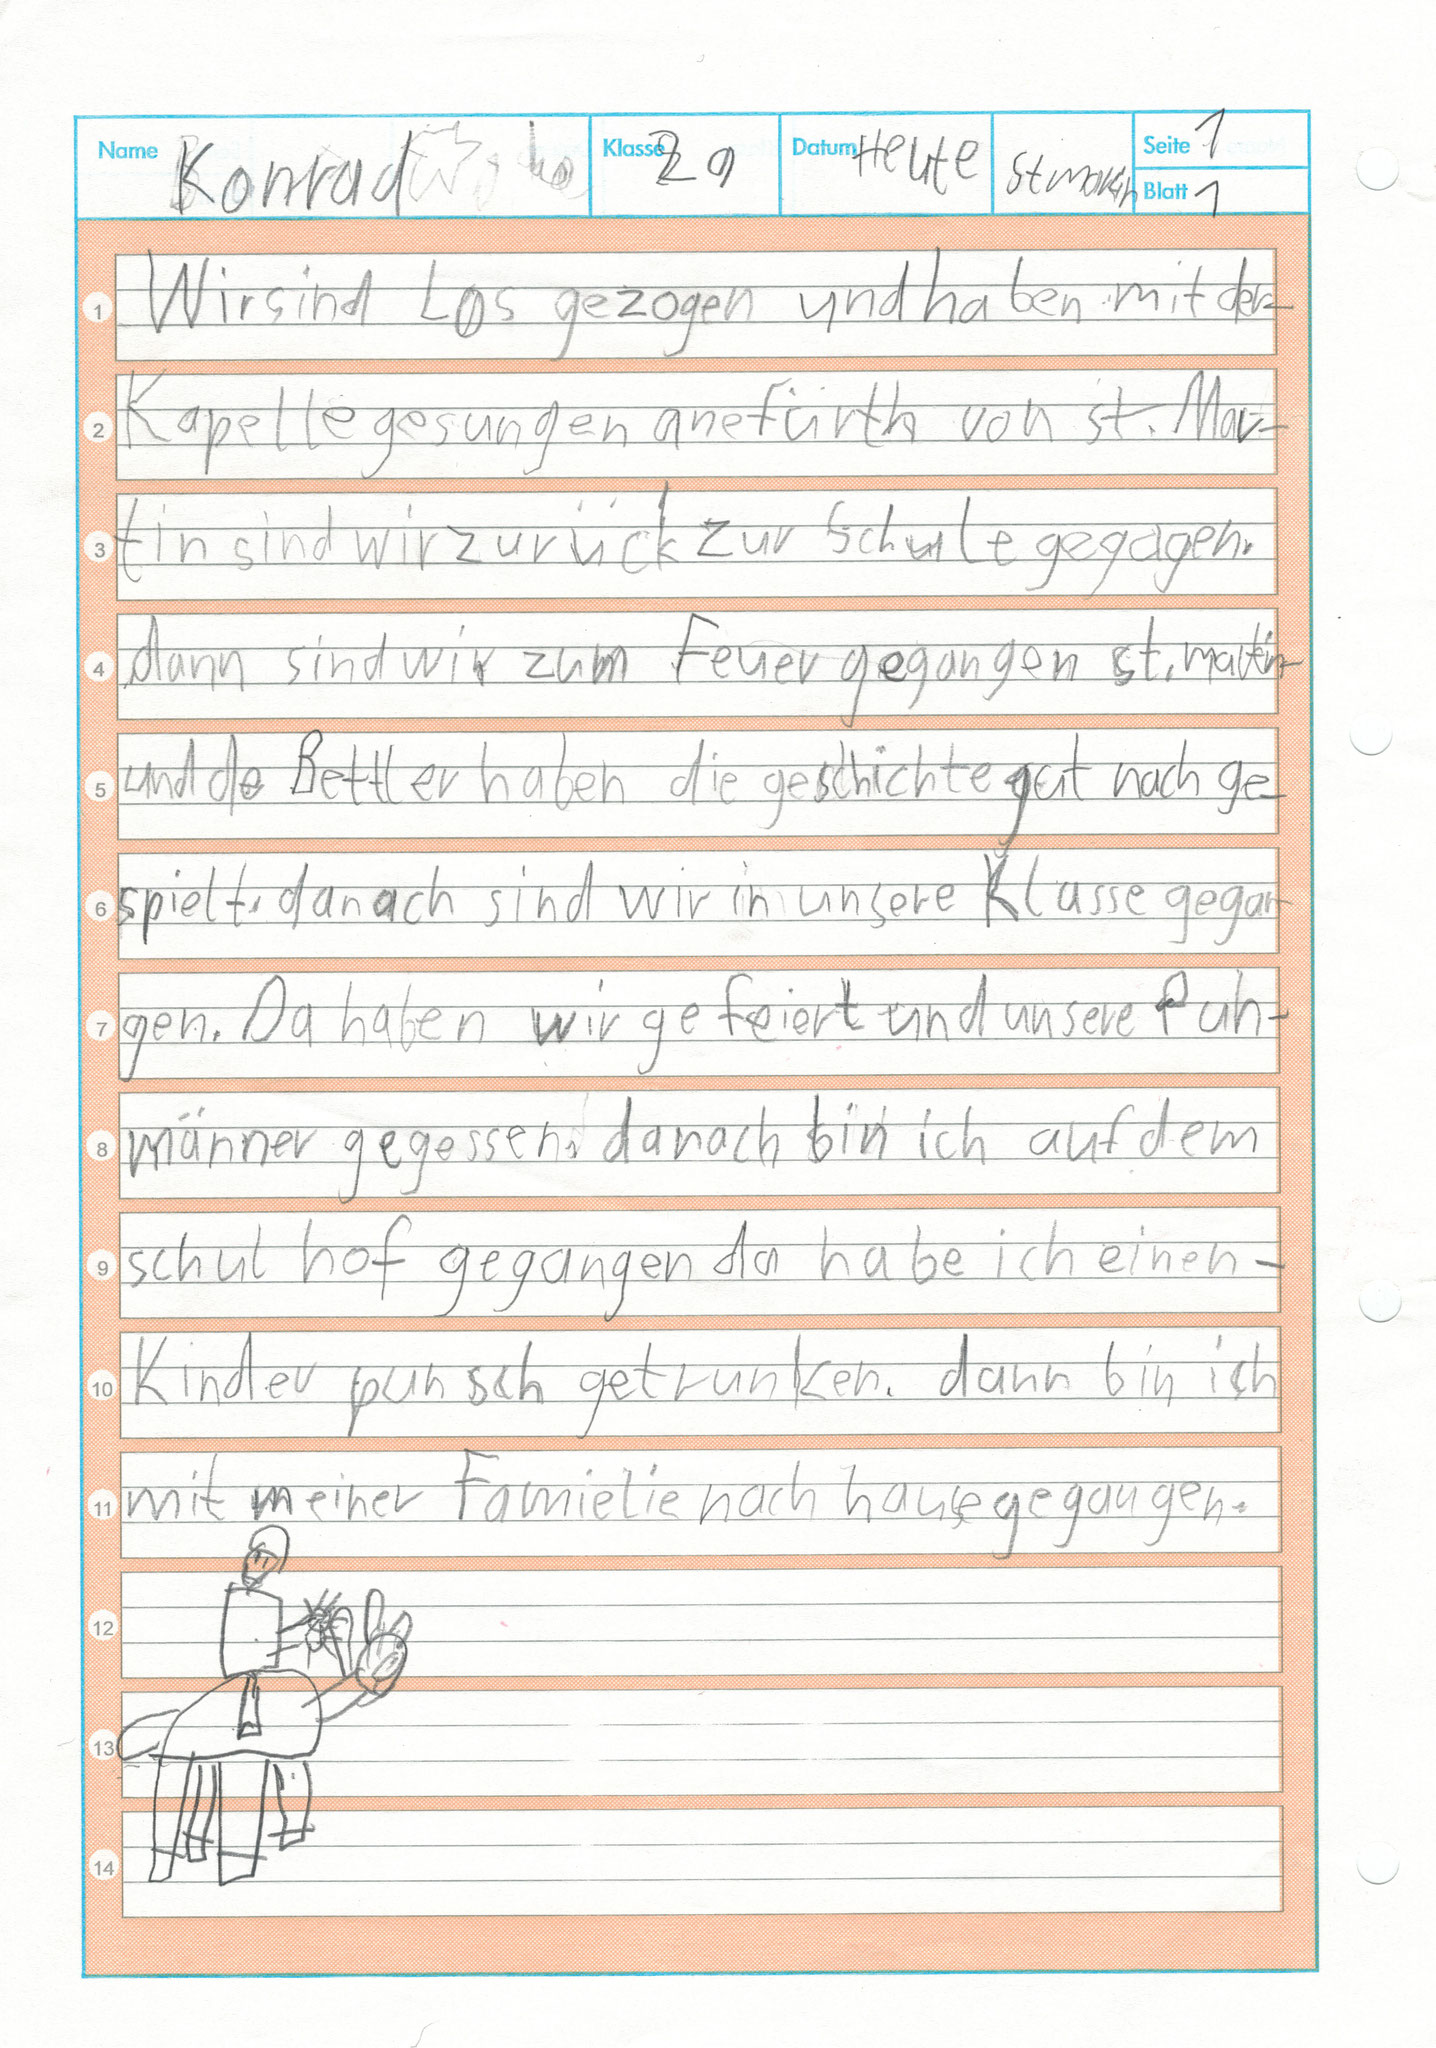 Name Konrad Klasse 2a Datum Heute St martin Seite 1
Blatt 1
1 Wir sind Los gezogen und haben mit der-
2 Kapelle gesungen anefürth von st. Mar-
3 tin sind wir zurück zur Schule gegagen.
4 dann sind wir zum Feuer gegangen st. martin-
5 und de Bettler haben die geschichte gut nach ge-
6 spielt. danach sind wir in unsere Klasse gegan-
7 gen. Da haben wir gefeiert und unsere Puh-
8 männer gegessen. danach bin ich auf dem
9 schul hof gegangen da habe ich einen-
10 Kinder punsch getrunken. dann bin ich
11 mit meiner Famielie nach hause gegangen.
12
13
14